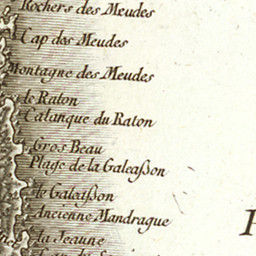 Rochers des Meudes
Cap des Meudes
Montagne des Meudes
le Raton
Calanque du Raton
Gros Beau
Plage de la Galeaßon
le Galeaßon
Ancienne Mandrague
la Jeaune